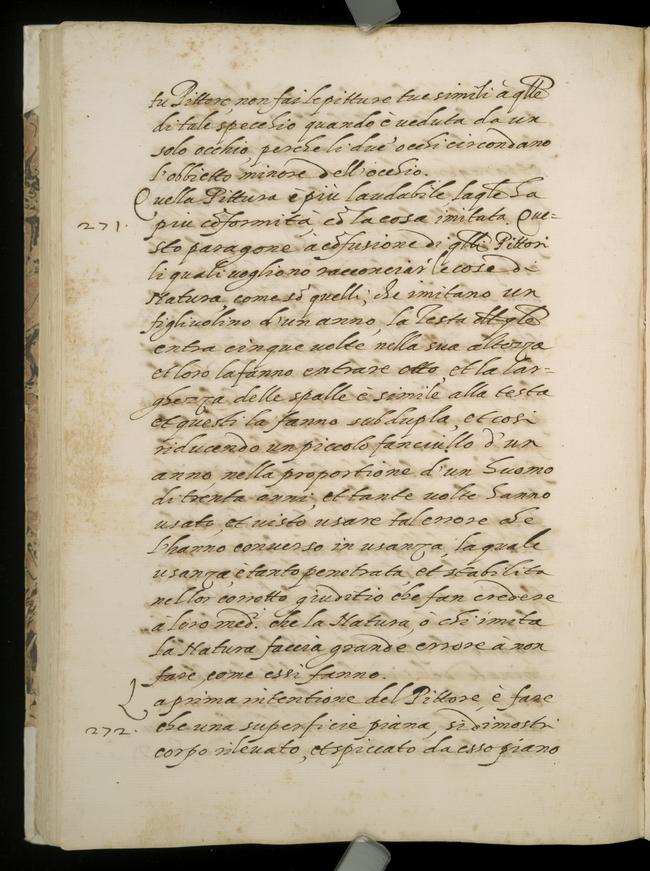 tu Pittore non fai le pitture tue simili à qlle
di tale specchio quando è ueduta da un
solo occhio, perche li due occhi circondano
l'obbietto minore dell'occhio.
Quella Pittura è più laudabile laqle ha
271. più cõformità cõ la cosa imitata. Que=
sto paragone à cõfusione di qlli Pittori
li quali uogliono racconciar le cose di
Natura, come sõ quelli, che imitano un
figliuolino d'un anno, la Testa
entra cinque uolte nella sua altezza
et loro la fanno entrare otto, et la lar=
ghezza delle spalle è simile alla testa
et questi la fanno subdupla, et cosi
riducendo un piccolo fanciullo d'un
anno nella proportione d'un huomo
di trenta anni, et tante uolte hanno
usato, et uisto usare tal errore che
l'hanno conuerso in usanza, la quale
usanza è tanto penetrata, et stabilita
nel lor corrotto giuditio che fan credere
à loro med.i che la Natura, o chi imita
la Natura faccia grande errore à non
fare come essi fanno.
La prima intentione del Pittore, è fare
272. che una superficie piana, si dimostri
corpo rileuato, et spiccato da esso piano